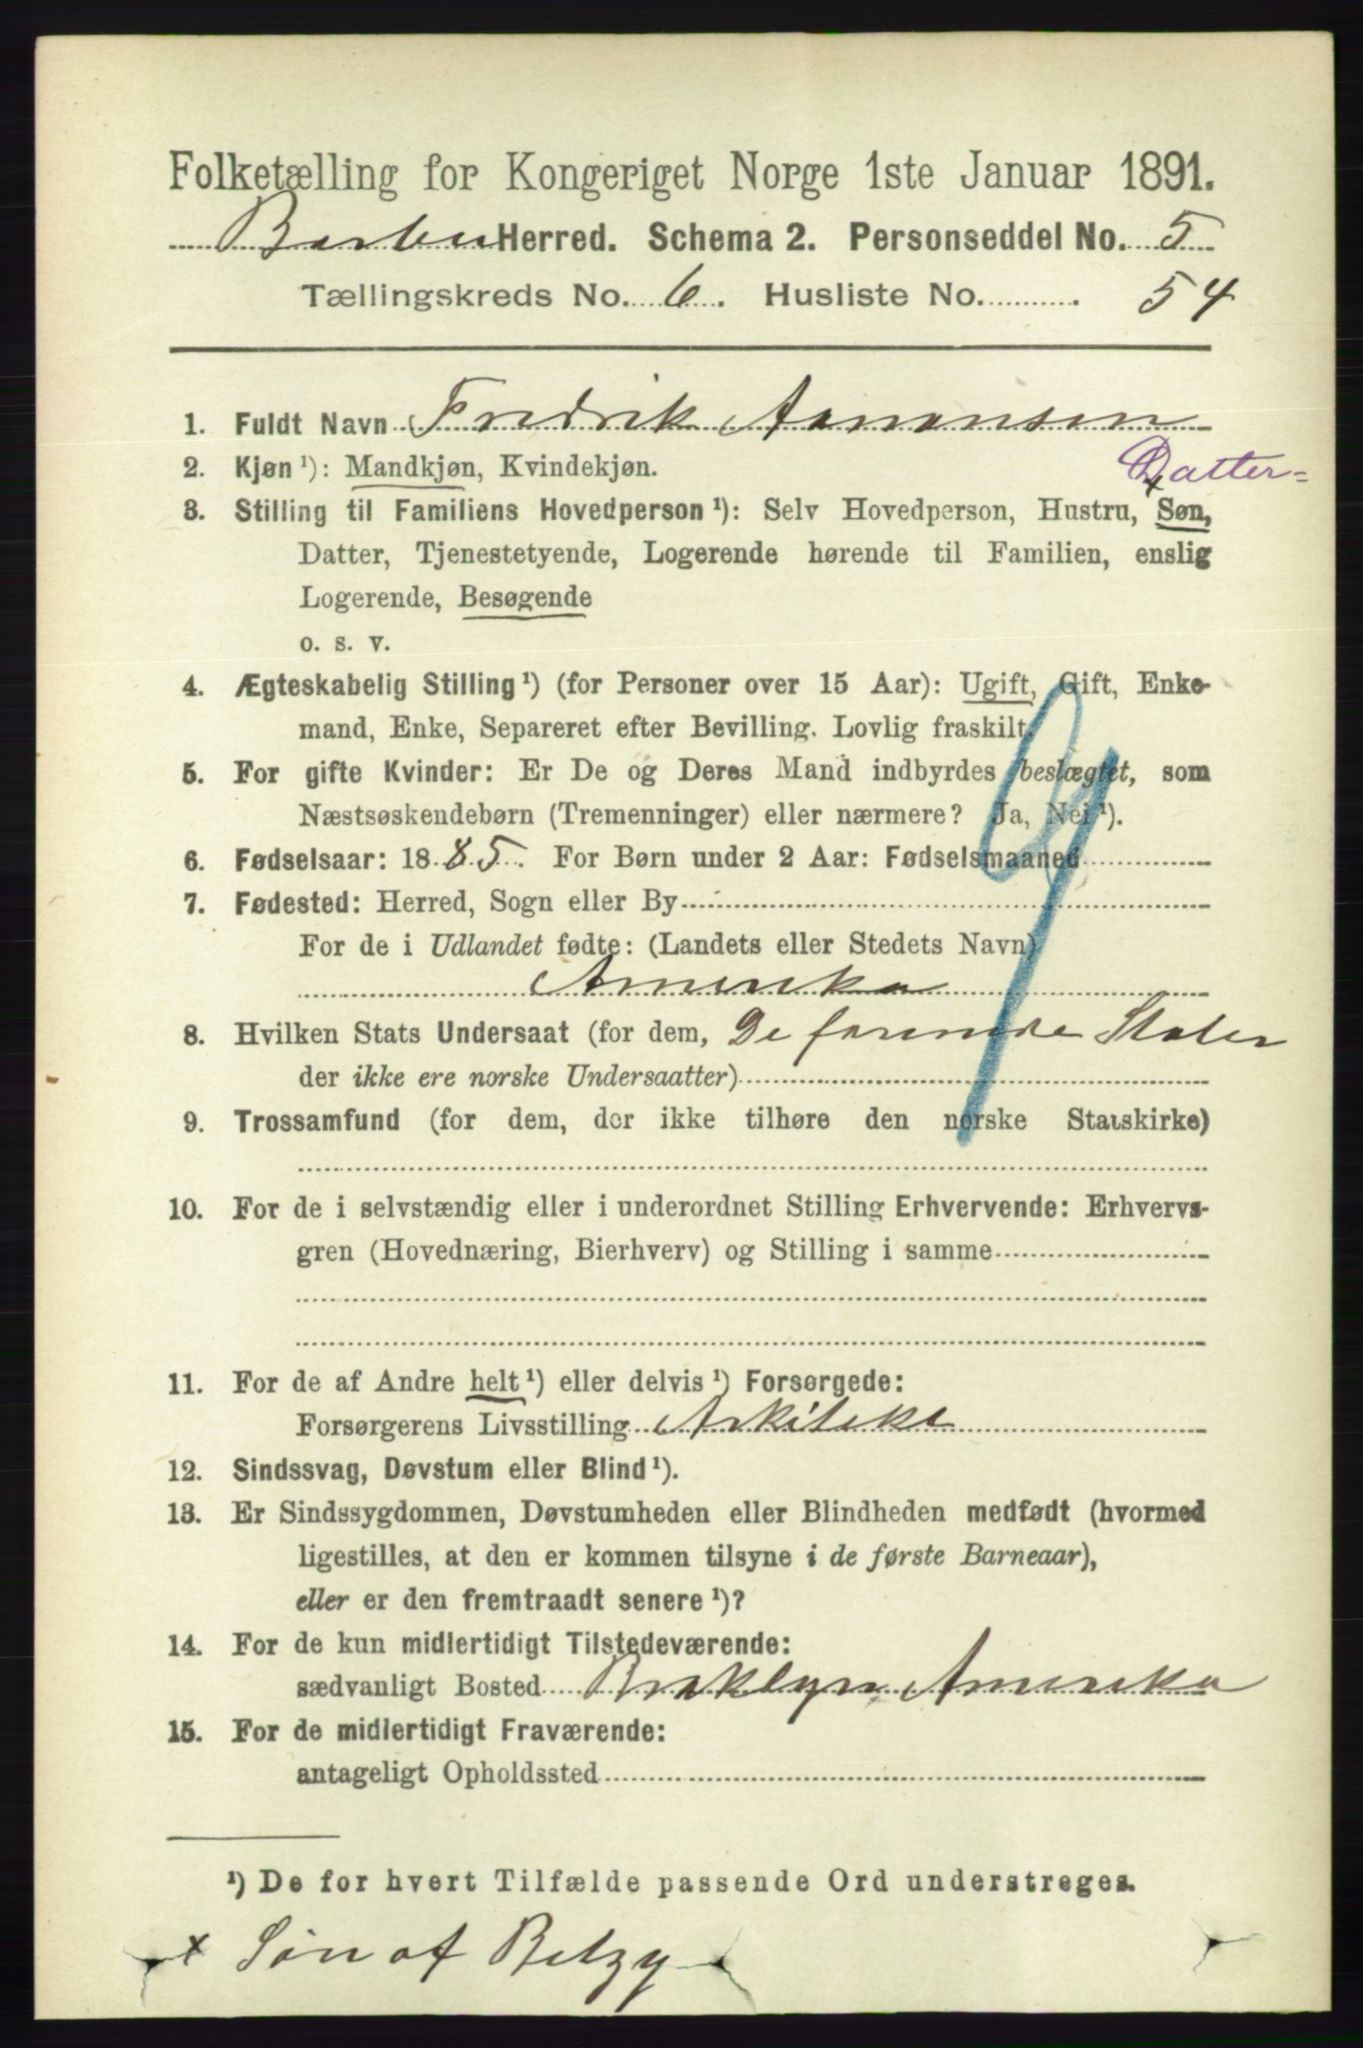 Folketælling for Kongeriget Norge 1ste Januar 1891.
Barbu Herred. Schema 2. Personseddel No. 5
Tællingskreds No. 6. Husliste No. 54
1. Fuldt Navn Fredrik Aamonsen
2. Kjøn ¹): Mandkjøn, Kvindekjøn. Datter-
3. Stilling til Familiens Hovedperson ¹): Selv Hovedperson, Hustru, Søn, x
Datter, Tjenestetyende, Logerende hørende til Familien, enslig
Logerende, Besøgende
o. s. v.
4. Ægteskabelig Stilling ¹) (for Personer over 15 Aar): Ugift, Gift, Enke-
mand, Enke, Separeret efter Bevilling. Lovlig fraskilt.
5. For gifte Kvinder: Er De og Deres Mand indbyrdes beslægtet, som
Næstsøskendebørn (Tremenninger) eller nærmere? Ja, Nei ¹).
6. Fødselsaar: 1885. For Børn under 2 Aar: Fødselsmaaned
7. Fødested: Herred, Sogn eller By
For de i Udlandet fødte: (Landets eller Stedets Navn)
Amerika
8. Hvilken Stats Undersaat (for dem, De forenede Stater
der ikke ere norske Undersaatter)
9. Trossamfund (for dem, der ikke tilhøre den norske Statskirke)
10. For de i selvstændig eller i underordnet Stilling Erhvervende: Erhvervs-
gren (Hovednæring, Bierhverv) og Stilling i samme
11. For de af Andre helt ¹) eller delvis ¹) Forsørgede:
Forsørgerens Livsstilling Arkitekt
12. Sindssvag, Døvstum eller Blind ¹).
13. Er Sindssygdommen, Døvstumheden eller Blindheden medfødt (hvormed
ligestilles, at den er kommen tilsyne i de første Barneaar),
eller er den fremtraadt senere ¹)?
14. For de kun midlertidigt Tilstedeværende:
sædvanligt Bosted Broklyn Amerika
15. For de midlertidigt Fraværende:
antageligt Opholdssted
¹) De for hvert Tilfælde passende Ord understreges.
x Søn af Betzy